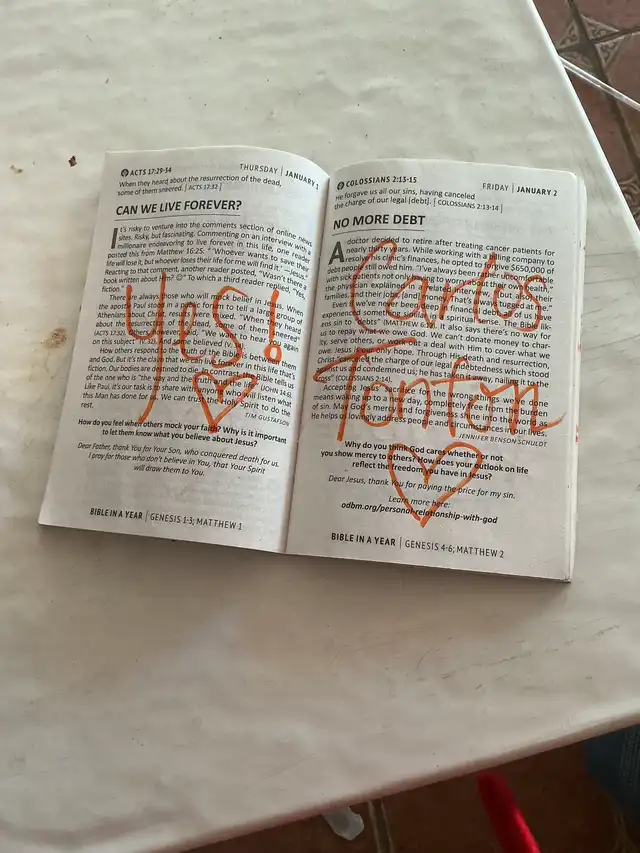 ACTS 17:29-34
THURSDAY | JANUARY 1
When they heard about the resurrection of the dead,
some of them sneered. [ ACTS 17:32 ]
CAN WE LIVE FOREVER?
It's risky to venture into the comments section of online news
sites. Risky, but fascinating. Commenting on an interview with a
millionaire endeavoring to live forever in this life, one reader
posted this from Matthew 16:25. "'Whoever wants to save their
life will lose it, but whoever loses their life for me will find it.' —Jesus"
Reacting to that comment, another reader posted, "Wasn't there a
book written about him? ☺" To which a third reader replied, "Yes,
fiction."
There are always those who will mock belief in Jesus. When
the apostle Paul stood in a public forum to tell a large group of
Athenians about Christ, results were mixed. "When they heard
about the resurrection of the dead, some of them sneered"
(ACTS 17:32). Others, however, said, "We want to hear you again
on this subject" (V. 32).
How others respond
and God. But it's the claim that we can live forever in this life that's
fiction. Our bodies are destined to die. In contrast, the Bible tells us
of the one who is "the way and the truth and the life" (JOHN 14:6).
Like Paul, it's our task is to share with anyone who will listen what
this Man has done for us. We can trust the Holy Spirit to do the
rest.
TIM GUSTAFSON
How do you feel when others mock your faith? Why is it important
to let them know what you believe about Jesus?
Dear Father, thank You for Your Son, who conquered death for us.
I pray for those who don't believe in You, that Your Spirit
will draw them to You.
BIBLE IN A YEAR | GENESIS 1-3; MATTHEW 1
Yes!
COLOSSIANS 2:13-15
FRIDAY | JANUARY 2
He forgave us all our sins, having canceled
the charge of our legal [debt]. [ COLOSSIANS 2:13-14 ]
NO MORE DEBT
A doctor decided to retire after treating cancer patients for
nearly thirty years. While working with a billing company to
resolve his clinic's finances, he opted to forgive $650,000 of
debt people still owed him. "I've always been
with sick patients not only having to worry about
the physician explained in a related interview, "but also their
families, [and] This
Even if we've never been
experienced something
en sin to "debts" (MATTHEW 6:12), it also says there's no way for
us to repay what we owe God. We can't donate money to char-
ity, serve others, or cut a deal with Him to cover what we
owe. Jesus is our only hope. Through His death and resurrection,
Christ "canceled the charge of our legal indebtedness which stood
against us and condemned us; he has taken it away, nailing it to the
cross" (COLOSSIANS 2:14).
Accepting Jesus' sacrifice for the
means we will one day completely free from the burden
of sin. May God's mercy and forgiveness shine into the world
He helps us lovingly address people and circumstances in our lives.
JENNIFER BENSON SCHULDT
Why do you think God cares whether or not
you show mercy to others? How does your outlook on life
reflect the freedom you have in Jesus?
Dear Jesus, thank You for paying the price for my sin.
Learn more here:
odbm.org/personal-relationship-with-god
BIBLE IN A YEAR | GENESIS 4-6; MATTHEW 2
Carlos
Tonfon